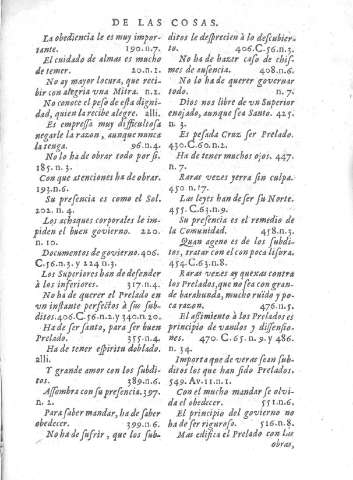 DE LAS COSAS.
La obediencia le es muy importante. 190.n.7.
El cuidado de almas es mucho
de temer. 20.n.1.
No ay mayor locura, que recibir
con alegria vna Mitra. n.2.
No conoce el peso de esta dignidad,
quien la recibe alegre. alli.
Es empressa muy dificultosa
negarle la razon, aunque nunca
la tenga. 96.n.4.
No lo ha de obrar todo por si.
185. n.3.
Con que atenciones ha de obrar.
193.n.6.
Su presencia es como el Sol.
202. n.4.
Los achaques corporales le impiden
el buen govierno. 220.
n. 10.
Documentos de govierno. 406.
C.56.n.3. y 224 n.3.
Los Superiores han de defender
à los inferiores. 317.n.4.
No ha de querer el Prelado en
vn instante perfectos à sus subditos.
406.C.56.n.2.y 340.n.20.
Ha de ser santo, para ser buen
Prelado. 355.n.4.
Ha de tener espiritu doblado.
alli.
Y grande amor con los subditos.
389.n.6.
Assombra con su presencia. 397.
n. 2.
Para saber mandar, ha de saber
obedecer. 399.n.6.
No ha de sufrir, que los sub-
ditos le desprecien à lo descubierto.
406.C.56.n.3.
No ha de hazer caso de chismes
de ausencia. 408.n.6.
No lo ha de querer governar
todo. n. 7.
Dios nos libre de vn Superior
enojado, aunque sea Santo. 425.
n. 3.
Es pesada Cruz ser Prelado.
430.C.60.n.2.
Ha de tener muchos ojos. 447.
n. 7.
Raras vezes yerra sin culpa.
450 n.17.
Las leyes han de ser su Norte.
455. C.63.n.9.
Su presencia es el remedio de
la Comunidad. 458.n.3.
Quan ageno es de los subditos,
tratar con el con poca lisura.
454.C.63.n.8.
Raras vezes ay quexas contra
los Prelados, que no sea con grande
barahunda, mucho ruido y poca
razon. 476.n.5.
El assimiento à los Prelados es
principio de vandos y dissensiones.
470. C.65.n.9. y 486.
n. 34.
Importa que de veras sean subditos
los que han sido Prelados.
549. Av.11.n.1.
Con el mucho mandar se olvida
el obedecer. 551.n.6.
El principio del govierno no
ha de ser riguroso. 516.n.8.
Mas edifica el Prelado con las
obras,